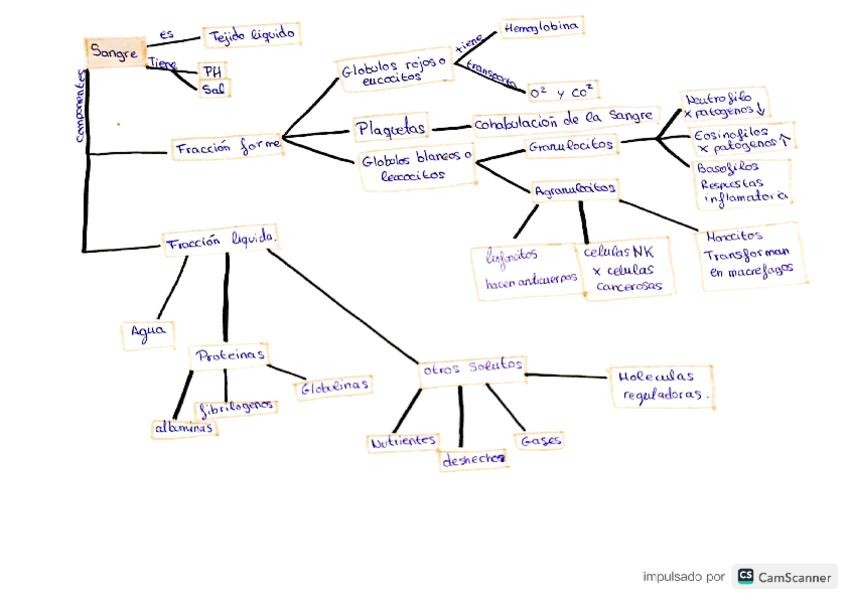 Sangre
es
Tejido liquido
Tiene
PH
Sal
componentes
Fracción forme
Globulos rojos o
eucocitos
tiene
Hemoglobina
transporta
O² y CO²
Plaquetas
Cohabulación de la Sangre
Globulos blancos o
leucocitos
Granulocitos
Neutrofilo
x patogenos ↓
Eosinofilos
x patogenos ↑
Basofilos
Respuestas
inflamatoria
Agranulocitos
linfocitos
hacen anticuerpos
celulas NK
x celulas
cancerosas
Monocitos
Transforman
en macrofagos
Fracción liquida.
Agua
Proteinas
albuminas
fibrilogenos
Globulinas
otros Solutos
Nutrientes
deshechos
Gases
Moleculas
reguladoras.
impulsado por CS CamScanner